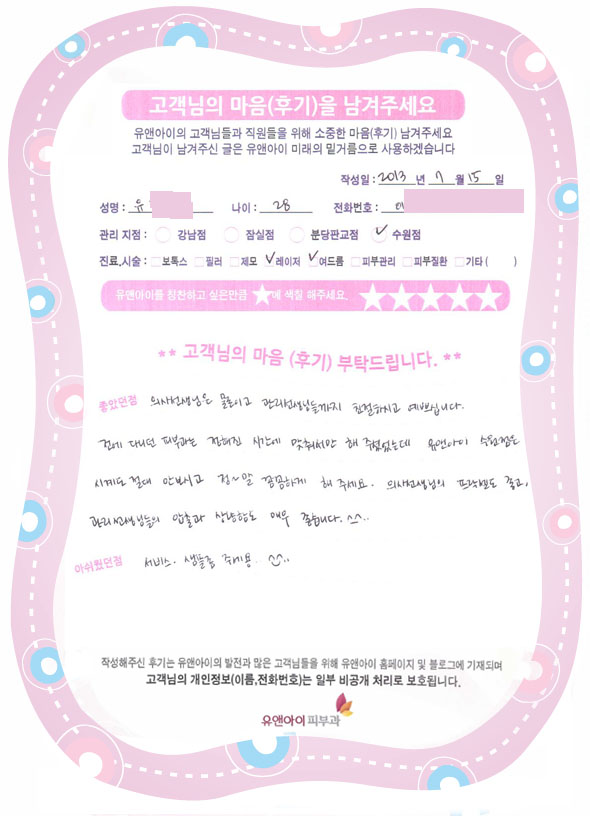 고객님의 마음(후기)을 남겨주세요
유앤아이의 고객님들과 직원들을 위해 소중한 마음(후기) 남겨주세요
고객님이 남겨주신 글은 유앤아이 미래의 밑거름으로 사용하겠습니다
작성일 : 2013 년 7 월 15 일
성명 : 유 나이 : 28 전화번호 :
관리 지점 : 강남점 잠실점 분당판교점 수원점
진료,시술 : 보톡스 필러 제모 레이저 여드름 피부관리 피부질환 기타 ( )
유앤아이를 칭찬하고 싶은만큼 ★에 색칠 해주세요. ★★★★★
** 고객님의 마음 (후기) 부탁드립니다. **
좋았던점 의사선생님은 물론이고 관리선생님들까지 친절하시고 예쁘십니다.
전에 다니던 피부과는 정해진 시간에 맞춰서만 해 주셨었는데 유앤아이 수원점은
시계도 절대 안보시고 정~말 꼼꼼하게 해 주세요. 의사선생님의 프락셀도 좋고,
관리선생님들의 압출과 상냥함도 매우 좋습니다. ^^..
아쉬웠던점 서비스. 샘플좀 주세용. ^^..
작성해주신 후기는 유앤아이의 발전과 많은 고객님들을 위해 유앤아이 홈페이지 및 블로그에 기재되며
고객님의 개인정보(이름,전화번호)는 일부 비공개 처리로 보호됩니다.
유앤아이피부과